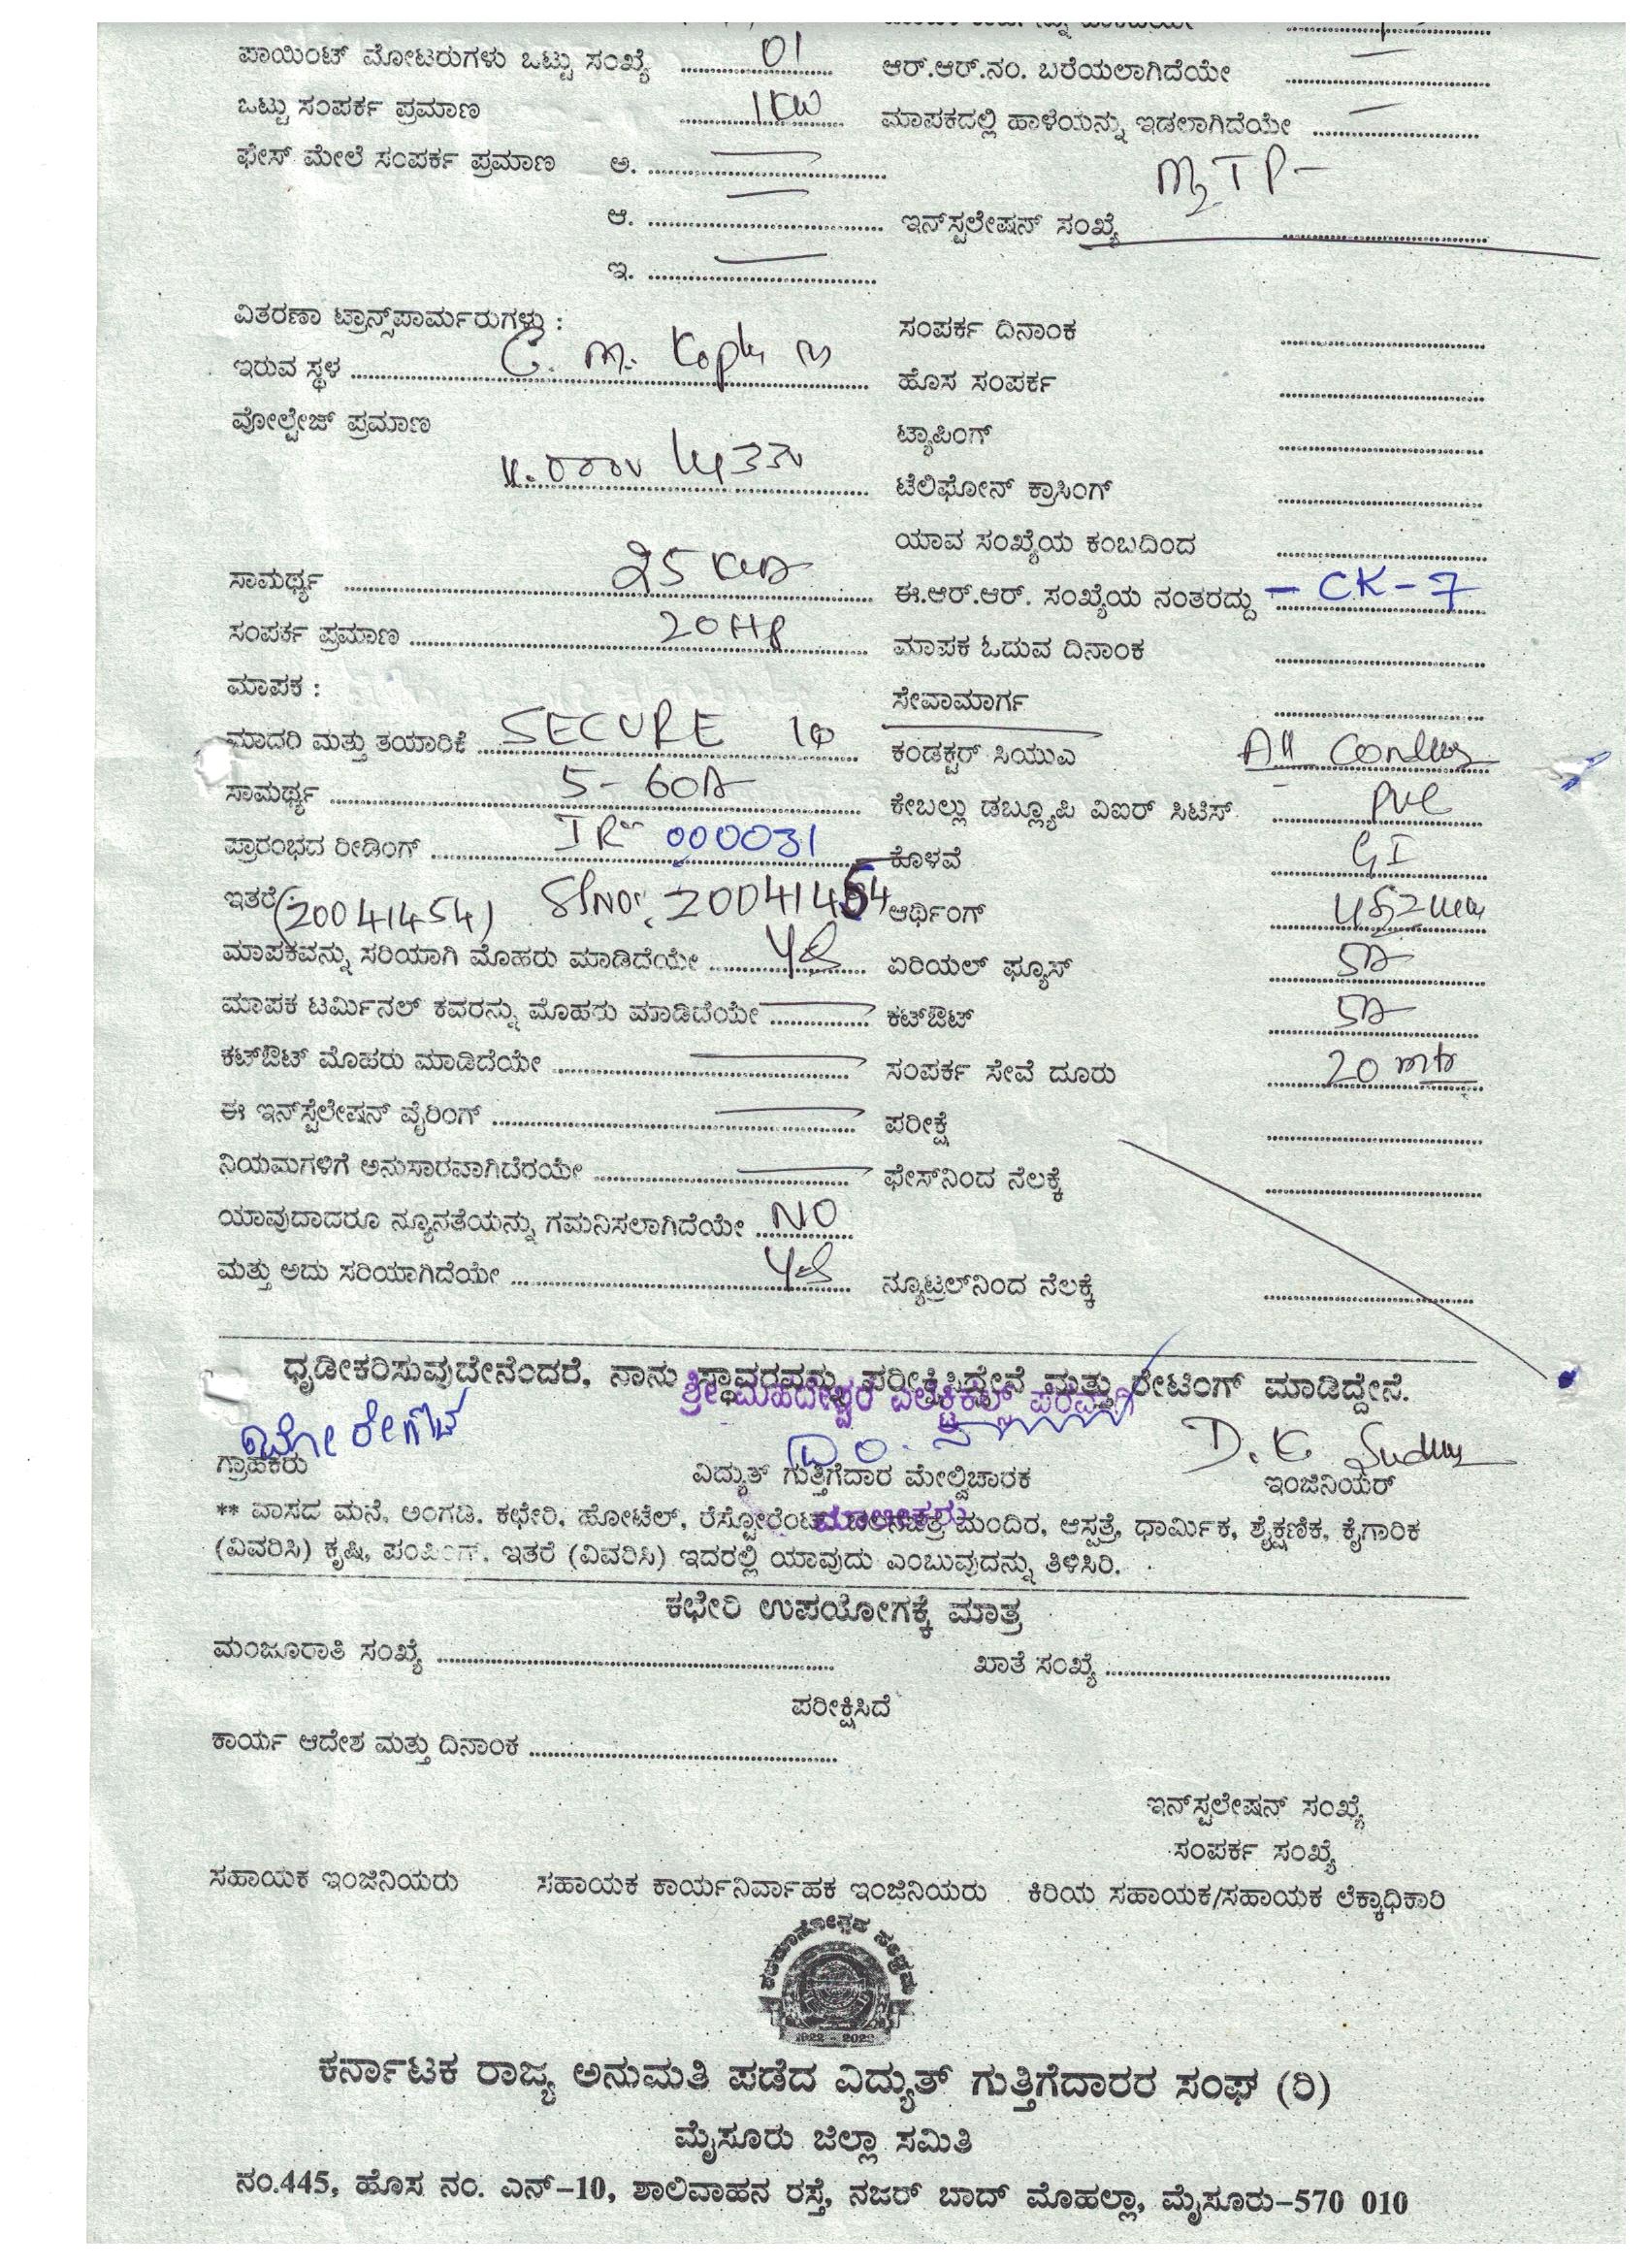 ಪಾಯಿಂಟ್ ಮೋಟರುಗಳು ಒಟ್ಟು ಸಂಖ್ಯೆ 01 ಆರ್.ಆರ್.ನಂ. ಬರೆಯಲಾಗಿದೆಯೇ —
ಒಟ್ಟು ಸಂಪರ್ಕ ಪ್ರಮಾಣ 1KW ಮಾಪಕದಲ್ಲಿ ಹಾಳೆಯನ್ನು ಇಡಲಾಗಿದೆಯೇ —
ಫೇಸ್ ಮೇಲೆ ಸಂಪರ್ಕ ಪ್ರಮಾಣ ಅ. —
ಆ. — ಇನ್‌ಸ್ಟಲೇಷನ್ ಸಂಖ್ಯೆ
ಇ. —
ವಿತರಣಾ ಟ್ರಾನ್ಸ್‌ಪಾರ್ಮರುಗಳು : ಸಂಪರ್ಕ ದಿನಾಂಕ
ಇರುವ ಸ್ಥಳ ಹೊಸ ಸಂಪರ್ಕ
ವೋಲ್ಟೇಜ್ ಪ್ರಮಾಣ ಟ್ಯಾಪಿಂಗ್
ಟೆಲಿಫೋನ್ ಕ್ರಾಸಿಂಗ್
ಯಾವ ಸಂಖ್ಯೆಯ ಕಂಬದಿಂದ
ಸಾಮರ್ಥ್ಯ 25 KVA ಈ.ಆರ್.ಆರ್. ಸಂಖ್ಯೆಯ ನಂತರದ್ದು - CK - 7
ಸಂಪರ್ಕ ಪ್ರಮಾಣ 20HP ಮಾಪಕ ಓದುವ ದಿನಾಂಕ
ಮಾಪಕ : ಸೇವಾಮಾರ್ಗ
ಮಾದರಿ ಮತ್ತು ತಯಾರಿಕೆ SECURE 1φ ಕಂಡಕ್ಟರ್ ಸಿಯುಎ
ಸಾಮರ್ಥ್ಯ 5-60A ಕೇಬಲ್ಲು ಡಬ್ಲ್ಯೂಪಿ ವಿಐರ್ ಸಿಟಿಸ್ PVC
ಪ್ರಾರಂಭದ ರೀಡಿಂಗ್ IR 000031 ಕೊಳವೆ GI
ಇತರೆ (20041454) SlNo: 20041454 ಆರ್ಥಿಂಗ್
ಮಾಪಕವನ್ನು ಸರಿಯಾಗಿ ಮೊಹರು ಮಾಡಿದೆಯೇ Yes ಏರಿಯಲ್ ಫ್ಯೂಸ್ 5A
ಮಾಪಕ ಟರ್ಮಿನಲ್ ಕವರನ್ನು ಮೊಹರು ಮಾಡಿದೆಯೇ — ಕಟ್‌ಔಟ್ 5A
ಕಟ್‌ಔಟ್ ಮೊಹರು ಮಾಡಿದೆಯೇ — ಸಂಪರ್ಕ ಸೇವೆ ದೂರು 20 mtr
ಈ ಇನ್‌ಸ್ಟೆಲೇಷನ್ ವೈರಿಂಗ್ — ಪರೀಕ್ಷೆ
ನಿಯಮಗಳಿಗೆ ಅನುಸಾರವಾಗಿದೆರಯೇ — ಫೇಸ್‌ನಿಂದ ನೆಲಕ್ಕೆ
ಯಾವುದಾದರೂ ನ್ಯೂನತೆಯನ್ನು ಗಮನಿಸಲಾಗಿದೆಯೇ NO
ಮತ್ತು ಅದು ಸರಿಯಾಗಿದೆಯೇ Yes ನ್ಯೂಟ್ರಲ್‌ನಿಂದ ನೆಲಕ್ಕೆ
ಧೃಡೀಕರಿಸುವುದೇನೆಂದರೆ, ನಾನು ಸ್ಥಾವರವನ್ನು ಪರೀಕ್ಷಿಸಿದ್ದೇನೆ ಮತ್ತು ರೇಟಿಂಗ್ ಮಾಡಿದ್ದೇನೆ.
ಶ್ರೀ ಮಹದೇಶ್ವರ ಎಲೆಕ್ಟ್ರಿಕಲ್ಸ್ ಪರವಾಗಿ
ಗ್ರಾಹಕರು ವಿದ್ಯುತ್ ಗುತ್ತಿಗೆದಾರ ಮೇಲ್ವಿಚಾರಕ ಇಂಜಿನಿಯರ್
** ವಾಸದ ಮನೆ, ಅಂಗಡಿ, ಕಛೇರಿ, ಹೋಟೆಲ್, ರೆಸ್ಟೋರೆಂಟ್, ಚಲನಚಿತ್ರ ಮಂದಿರ, ಆಸ್ಪತ್ರೆ, ಧಾರ್ಮಿಕ, ಶೈಕ್ಷಣಿಕ, ಕೈಗಾರಿಕ
(ವಿವರಿಸಿ) ಕೃಷಿ, ಪಂಪಿಂಗ್, ಇತರೆ (ವಿವರಿಸಿ) ಇದರಲ್ಲಿ ಯಾವುದು ಎಂಬುವುದನ್ನು ತಿಳಿಸಿರಿ.
ಕಛೇರಿ ಉಪಯೋಗಕ್ಕೆ ಮಾತ್ರ
ಮಂಜೂರಾತಿ ಸಂಖ್ಯೆ ಖಾತೆ ಸಂಖ್ಯೆ
ಪರೀಕ್ಷಿಸಿದೆ
ಕಾರ್ಯ ಆದೇಶ ಮತ್ತು ದಿನಾಂಕ
ಇನ್‌ಸ್ಟಲೇಷನ್ ಸಂಖ್ಯೆ
ಸಂಪರ್ಕ ಸಂಖ್ಯೆ
ಸಹಾಯಕ ಇಂಜಿನಿಯರು ಸಹಾಯಕ ಕಾರ್ಯನಿರ್ವಾಹಕ ಇಂಜಿನಿಯರು ಕಿರಿಯ ಸಹಾಯಕ/ಸಹಾಯಕ ಲೆಕ್ಕಾಧಿಕಾರಿ
ಕರ್ನಾಟಕ ರಾಜ್ಯ ಅನುಮತಿ ಪಡೆದ ವಿದ್ಯುತ್ ಗುತ್ತಿಗೆದಾರರ ಸಂಘ (ರಿ)
ಮೈಸೂರು ಜಿಲ್ಲಾ ಸಮಿತಿ
ನಂ.445, ಹೊಸ ನಂ. ಎನ್-10, ಶಾಲಿವಾಹನ ರಸ್ತೆ, ನಜರ್ ಬಾದ್ ಮೊಹಲ್ಲಾ, ಮೈಸೂರು-570 010